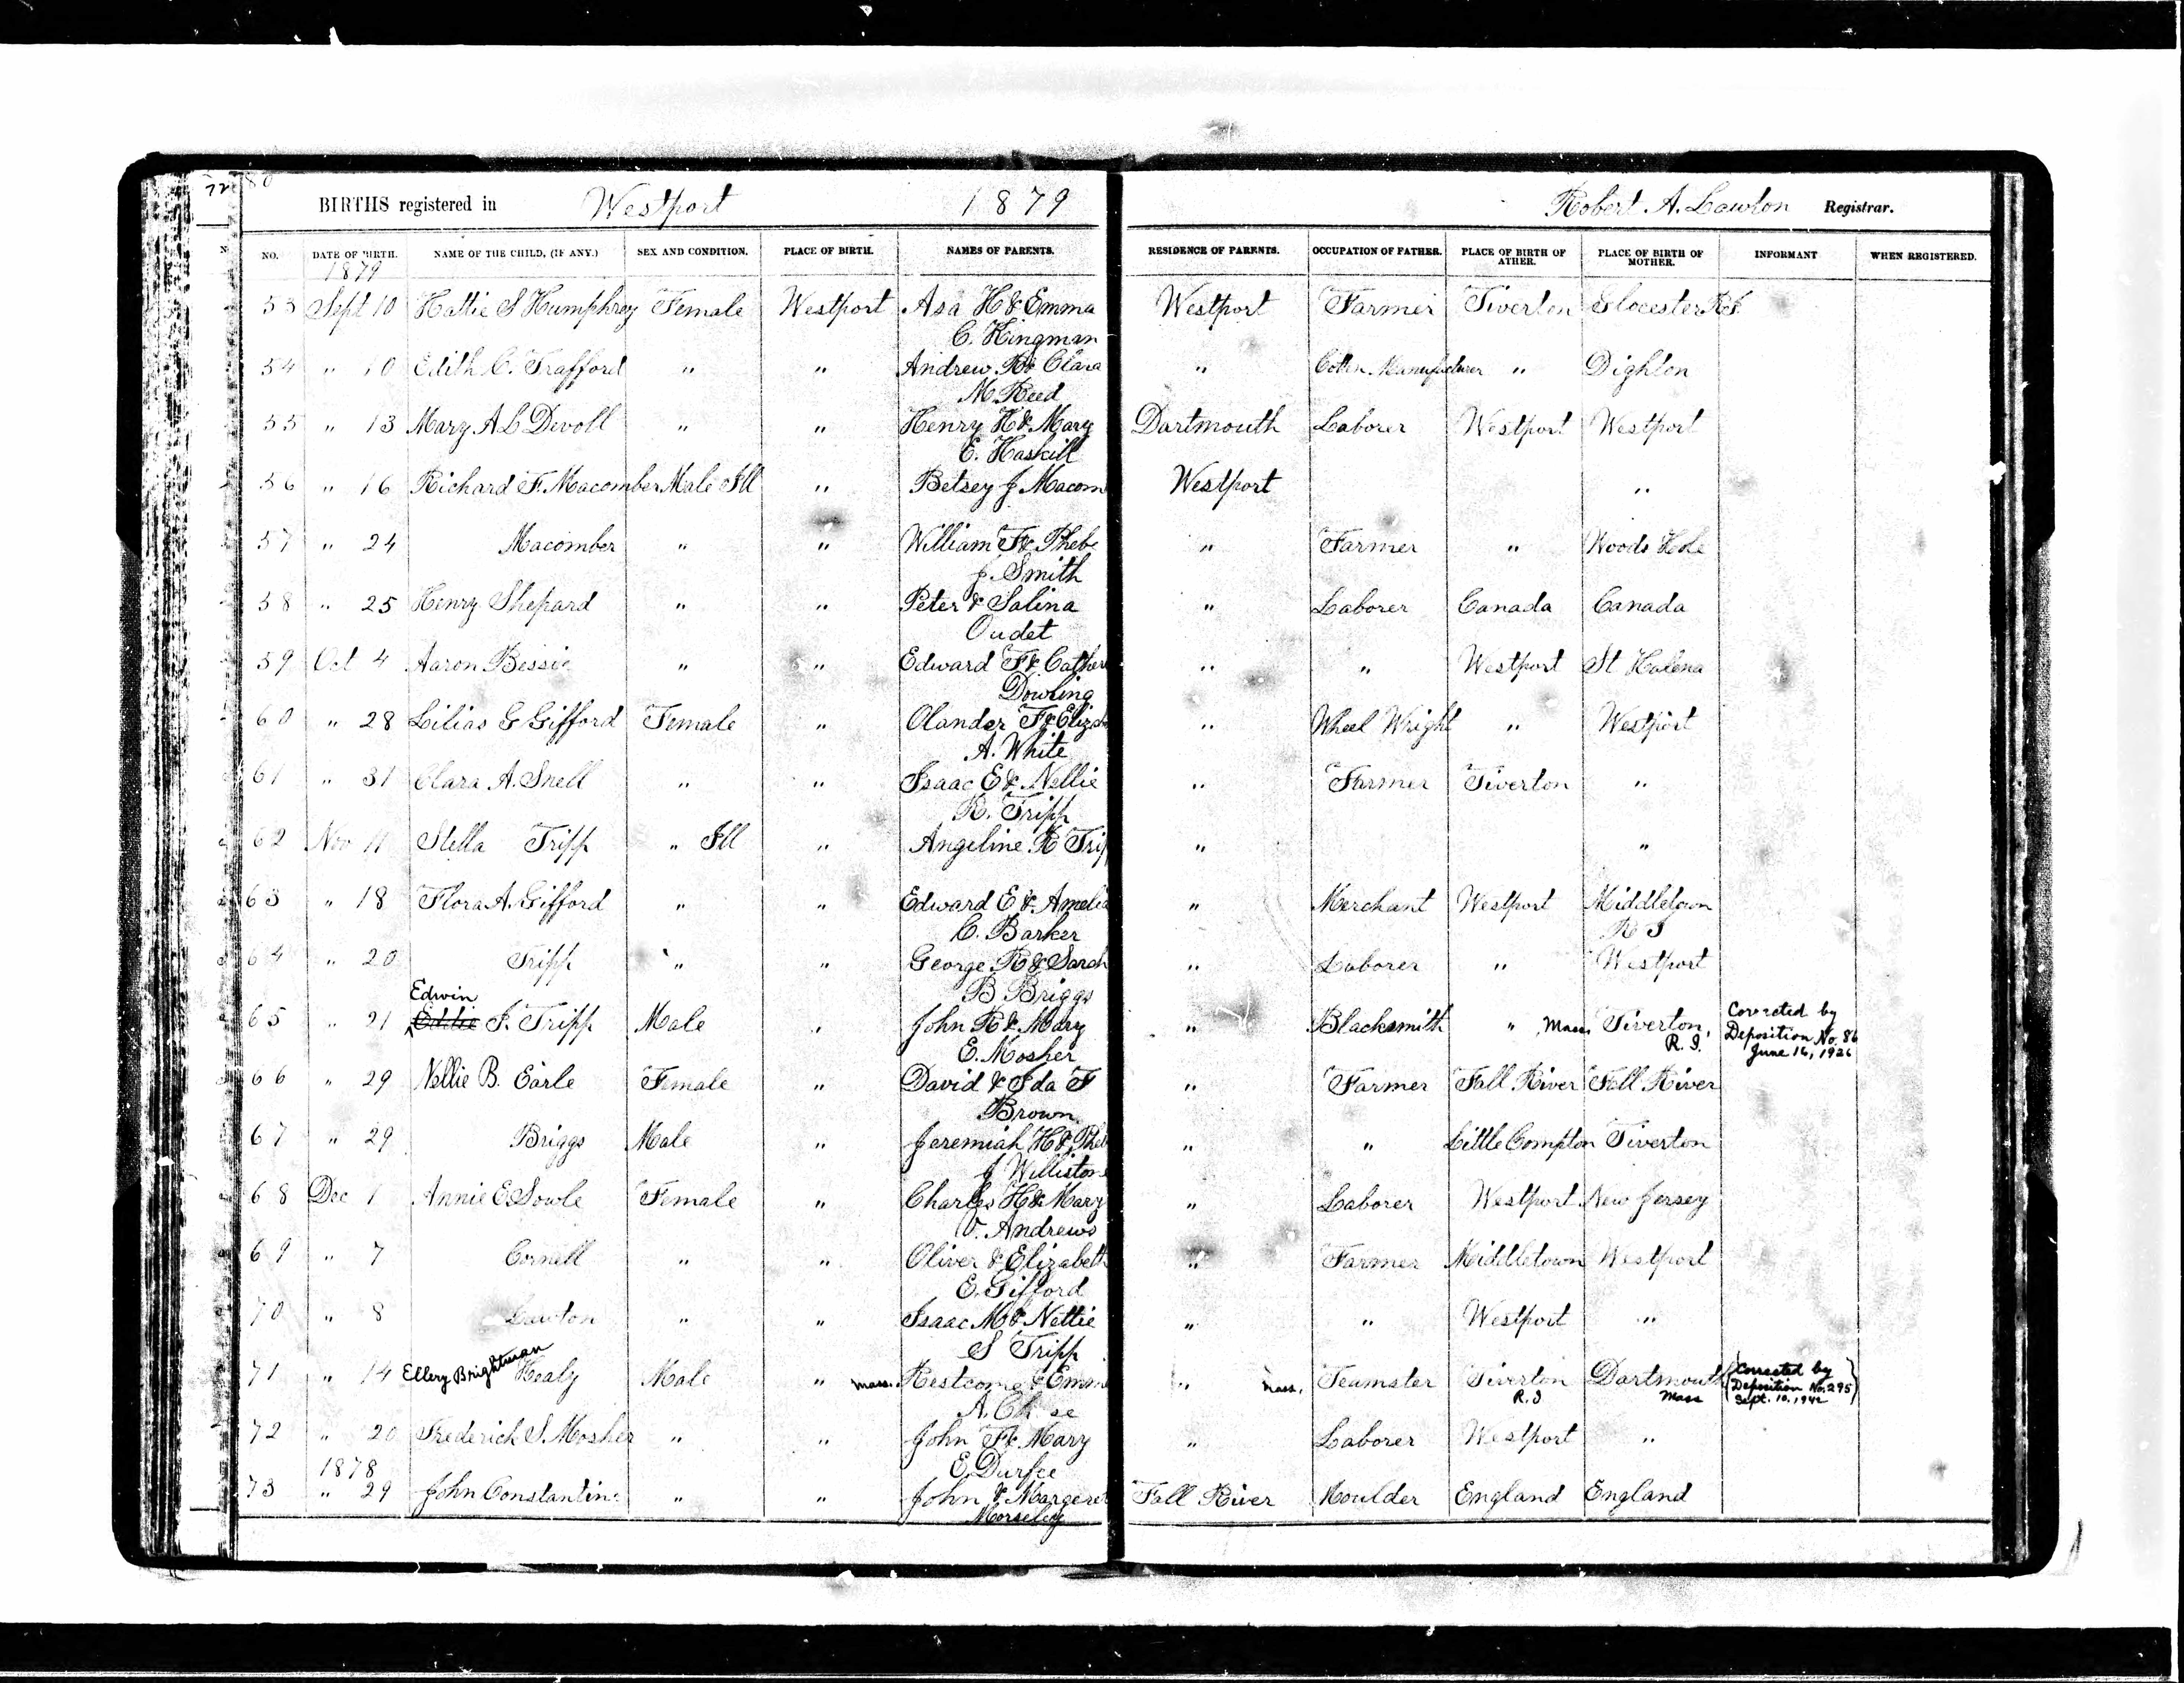 72 80
BIRTHS registered in Westport 1879 Robert A. Lawton Registrar.
NO. DATE OF BIRTH. NAME OF THE CHILD, (IF ANY.) SEX AND CONDITION. PLACE OF BIRTH. NAMES OF PARENTS. RESIDENCE OF PARENTS. OCCUPATION OF FATHER. PLACE OF BIRTH OF ATHER. PLACE OF BIRTH OF MOTHER. INFORMANT WHEN REGISTERED.
1879
53 Sept 10 Hattie S Humphrey Female Westport Asa H & Emma Westport Farmer Tiverton Glocester R.I.
C. Kingman
54 " 10 Edith C. Trafford " " Andrew R & Clara " Cotton Manufacturer " Dighton
M. Reed
55 " 13 Mary A L Devoll " " Henry H & Mary Dartmouth Laborer Westport Westport
E. Haskill
56 " 16 Richard F. Macomber Male Ill " Betsey J Macom Westport "
57 " 24 Macomber " " William F & Phebe " Farmer " Woods Hole
J. Smith
58 " 25 Henry Shepard " " Peter & Salina " Laborer Canada Canada
Oudet
59 Oct 4 Aaron Bessie " " Edward F & Cather " " Westport St Halena
Dowling
60 " 28 Lilias G Gifford Female " Olander F & Eliza " Wheel Wright " Westport
A. White
61 " 31 Clara A. Snell " " Isaac E & Nellie " Farmer Tiverton "
R. Tripp
62 Nov 11 Stella Tripp " Ill " Angeline R Trip " "
63 " 18 Flora A. Gifford " " Edward E & Amelia " Merchant Westport Middletown
C. Barker R I
64 " 20 Tripp " " George R & Sarah " Laborer " Westport
B Briggs
Edwin
65 " 21 Eddie J. Tripp Male " John R & Mary " Blacksmith " Mass. Tiverton, R.I. Corrected by
E. Mosher Deposition No. 86
June 16, 1926
66 " 29 Nellie B. Earle Female " David & Ida F " Farmer Fall River Fall River
Brown
67 " 29 Briggs Male " Jeremiah H & Pheb " " Little Compton Tiverton
J Williston
68 Dec 1 Annie E Sowle Female " Charles H & Mary " Laborer Westport New Jersey
V. Andrews
69 " 7 Cornell " " Oliver & Elizabeth " Farmer Middletown Westport
E. Gifford
70 " 8 Lawton " " Isaac M & Nettie " " Westport "
S Tripp
71 " 14 Ellery Brightman Healy Male " Mass. Restcome & Emma " Mass. Teamster Tiverton R.I. Dartmouth Mass Corrected by
A. Chase Deposition No. 295
Sept. 10, 1942
72 " 20 Frederick S. Mosher " " John F & Mary " Laborer Westport "
E. Durfee
1878
73 " 29 John Constantine " " John & Margeret Fall River Moulder England England
Morseley